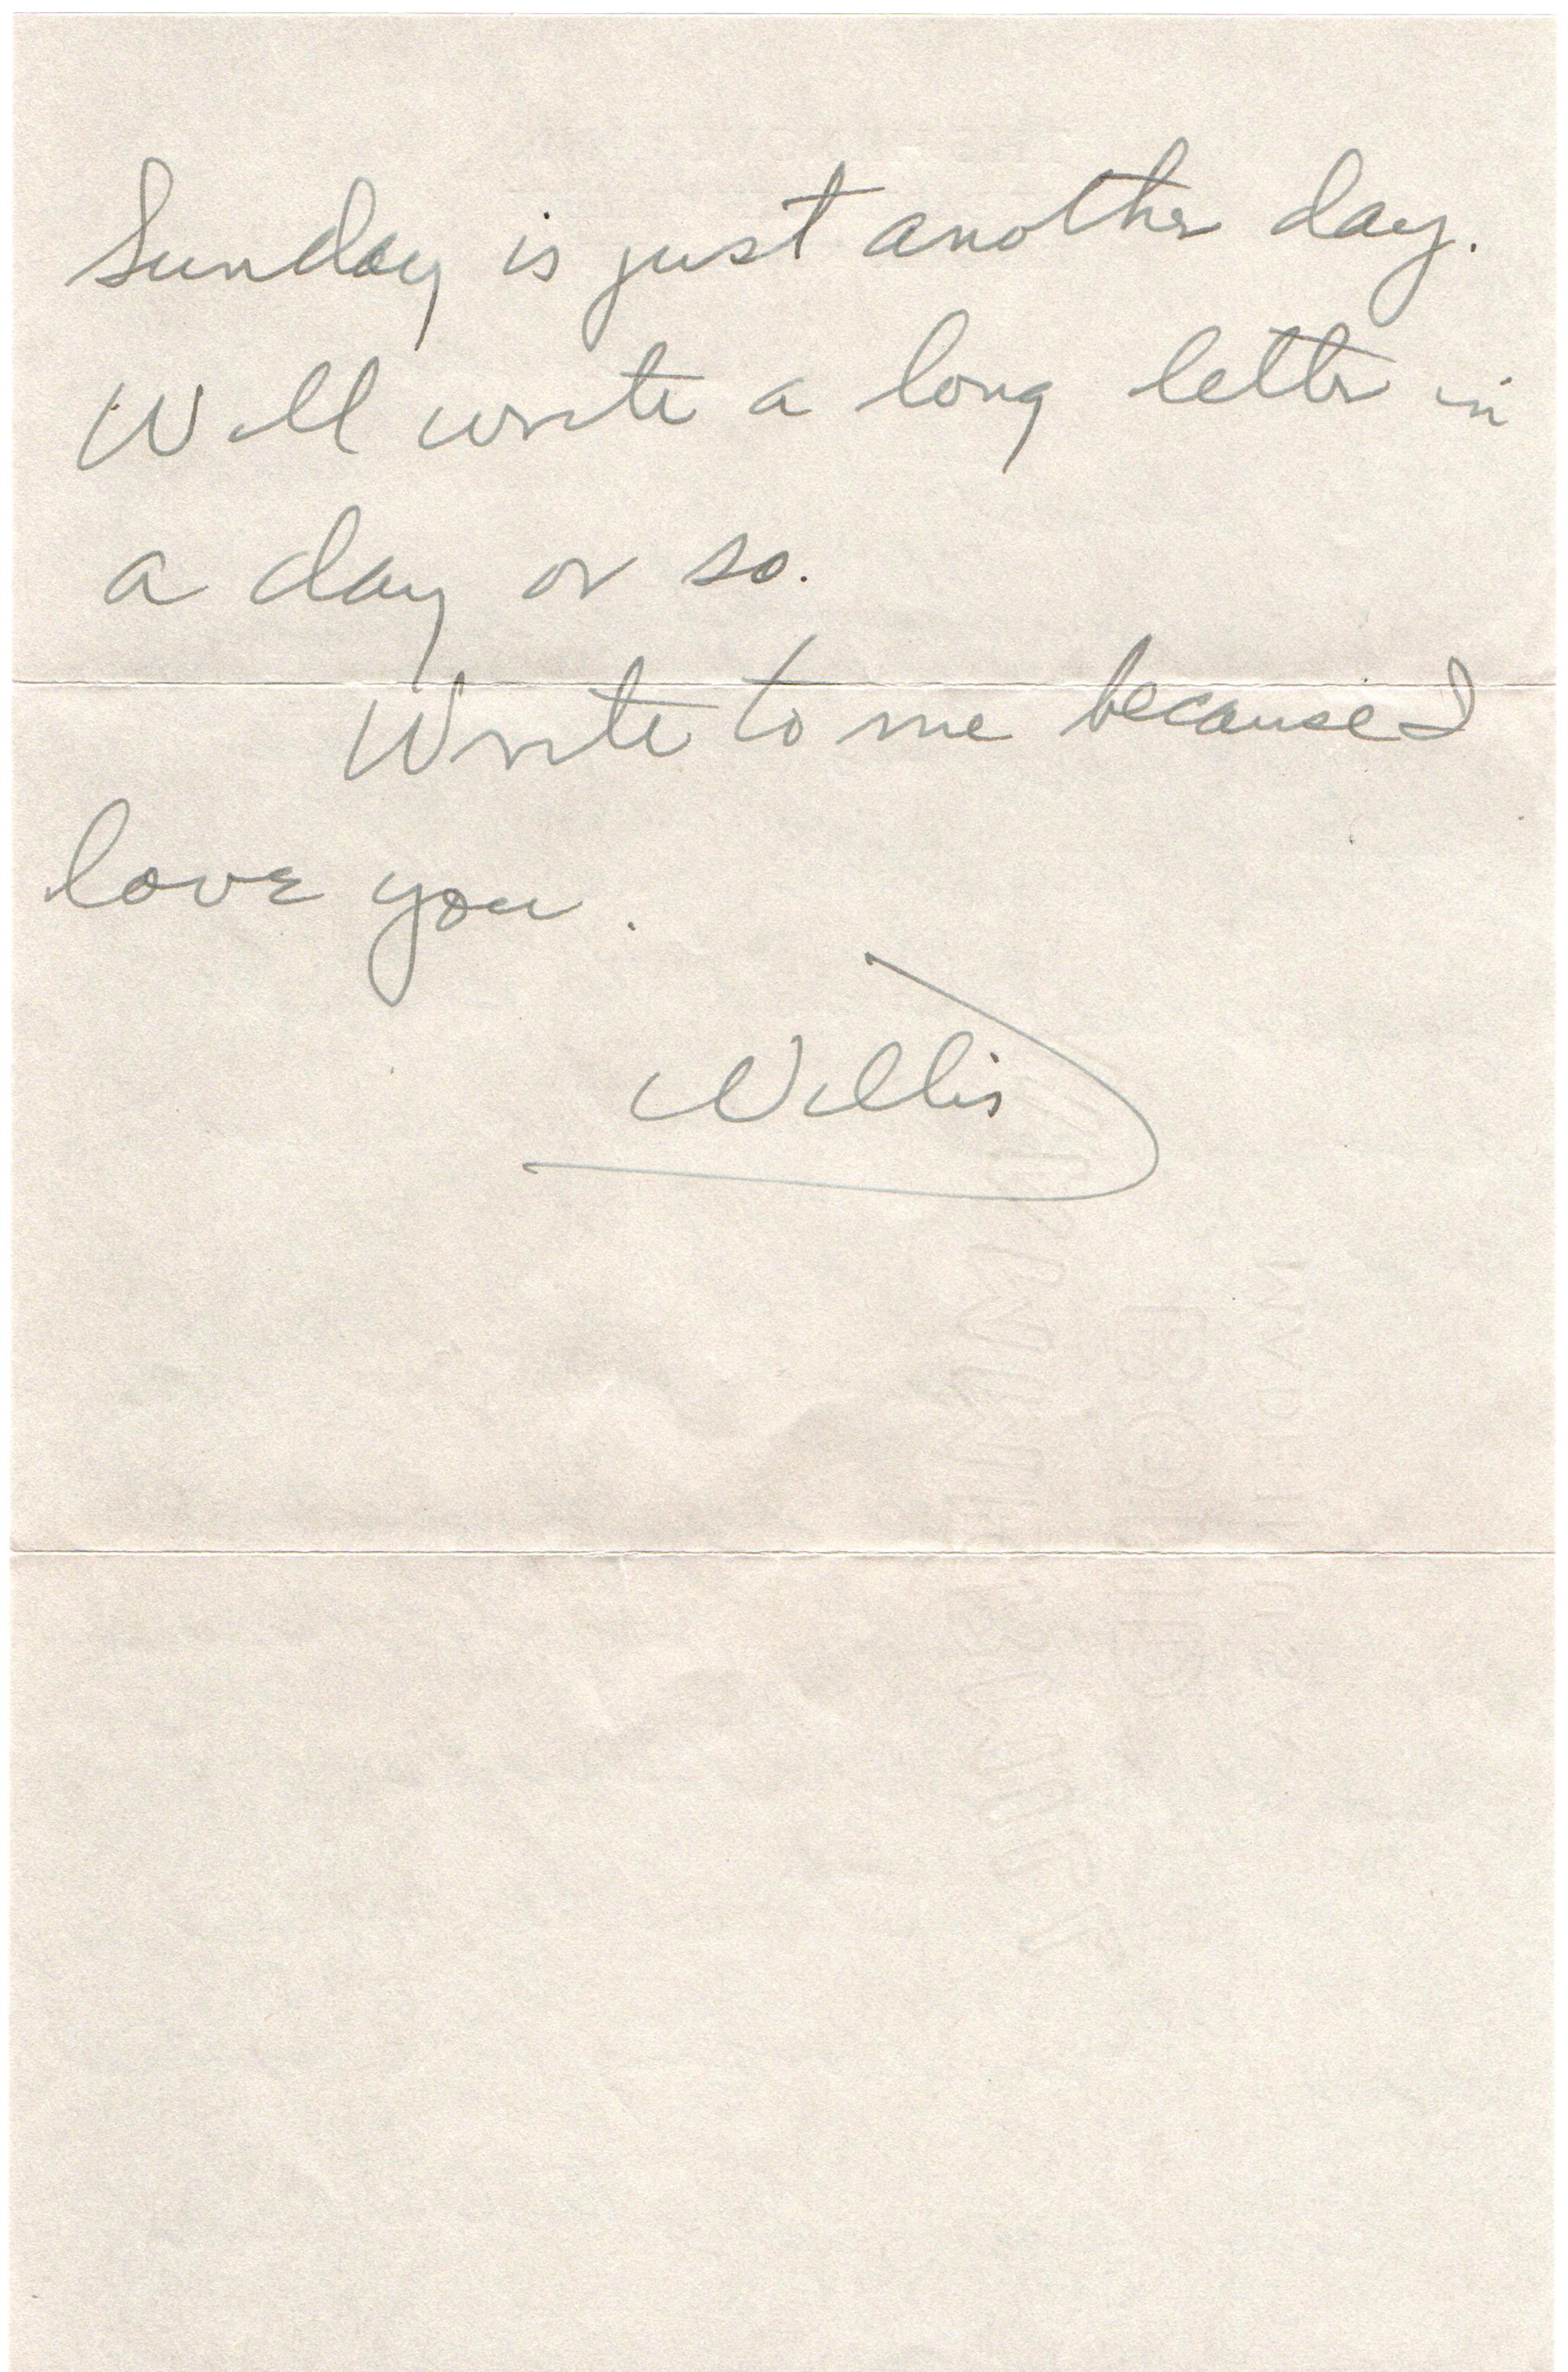 Sunday is just another day.
Will write a long letter in
a day or so.
Write to me because I
love you.
Willis